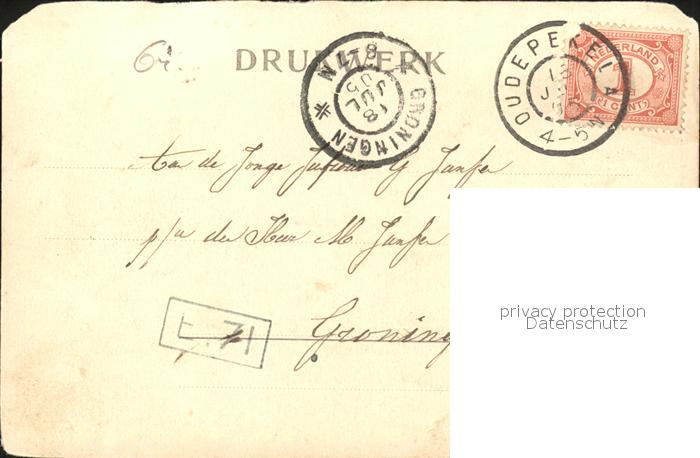 DRUKWERK
GRONINGEN
8-11N
18
JUL
05
OUDEPEKELA
18
4-5
NEDERLAND
1 CENT
Aan de Jonge Jufvrouw G Jansen
p/a den Heer M Jansen
Groning
privacy protection
Datenschutz